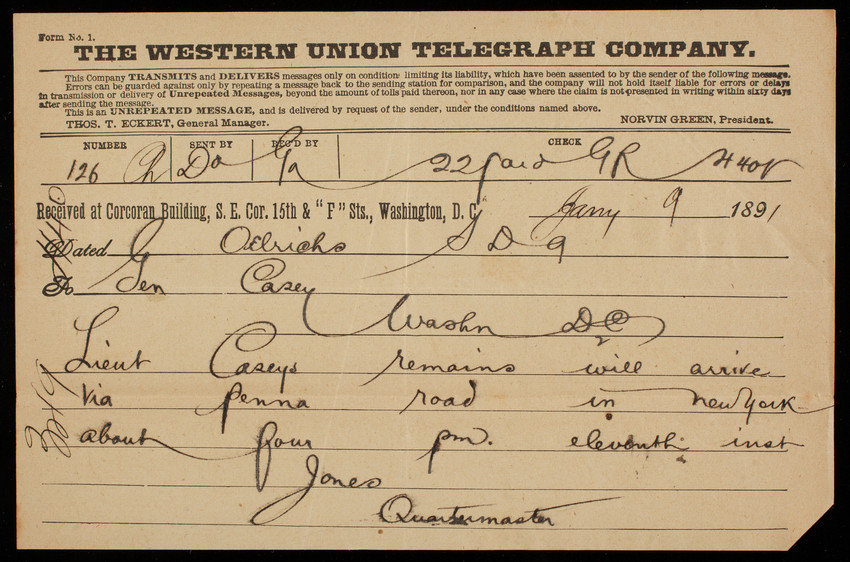 Form No. 1.
THE WESTERN UNION TELEGRAPH COMPANY.
This Company TRANSMITS and DELIVERS messages only on conditions limiting its liability, which have been assented to by the sender of the following message.
Errors can be guarded against only by repeating a message back to the sending station for comparison, and the company will not hold itself liable for errors or delays
in transmission or delivery of Unrepeated Messages, beyond the amount of tolls paid thereon, nor in any case where the claim is not presented in writing within sixty days
after sending the message.
This is an UNREPEATED MESSAGE, and is delivered by request of the sender, under the conditions named above.
THOS. T. ECKERT, General Manager. NORVIN GREEN, President.
NUMBER SENT BY REC'D BY CHECK
126 Ch Do Ga 22 paid GR 440P
Received at Corcoran Building, S. E. Cor. 15th & "F" Sts., Washington, D. C. Jany 9 1891
Dated Oelrichs S D 9
To Gen Casey
Washn DC
Lieut Caseys remains will arrive
via penna road in new York
about four pm. eleventh inst
Jones
Quartermaster